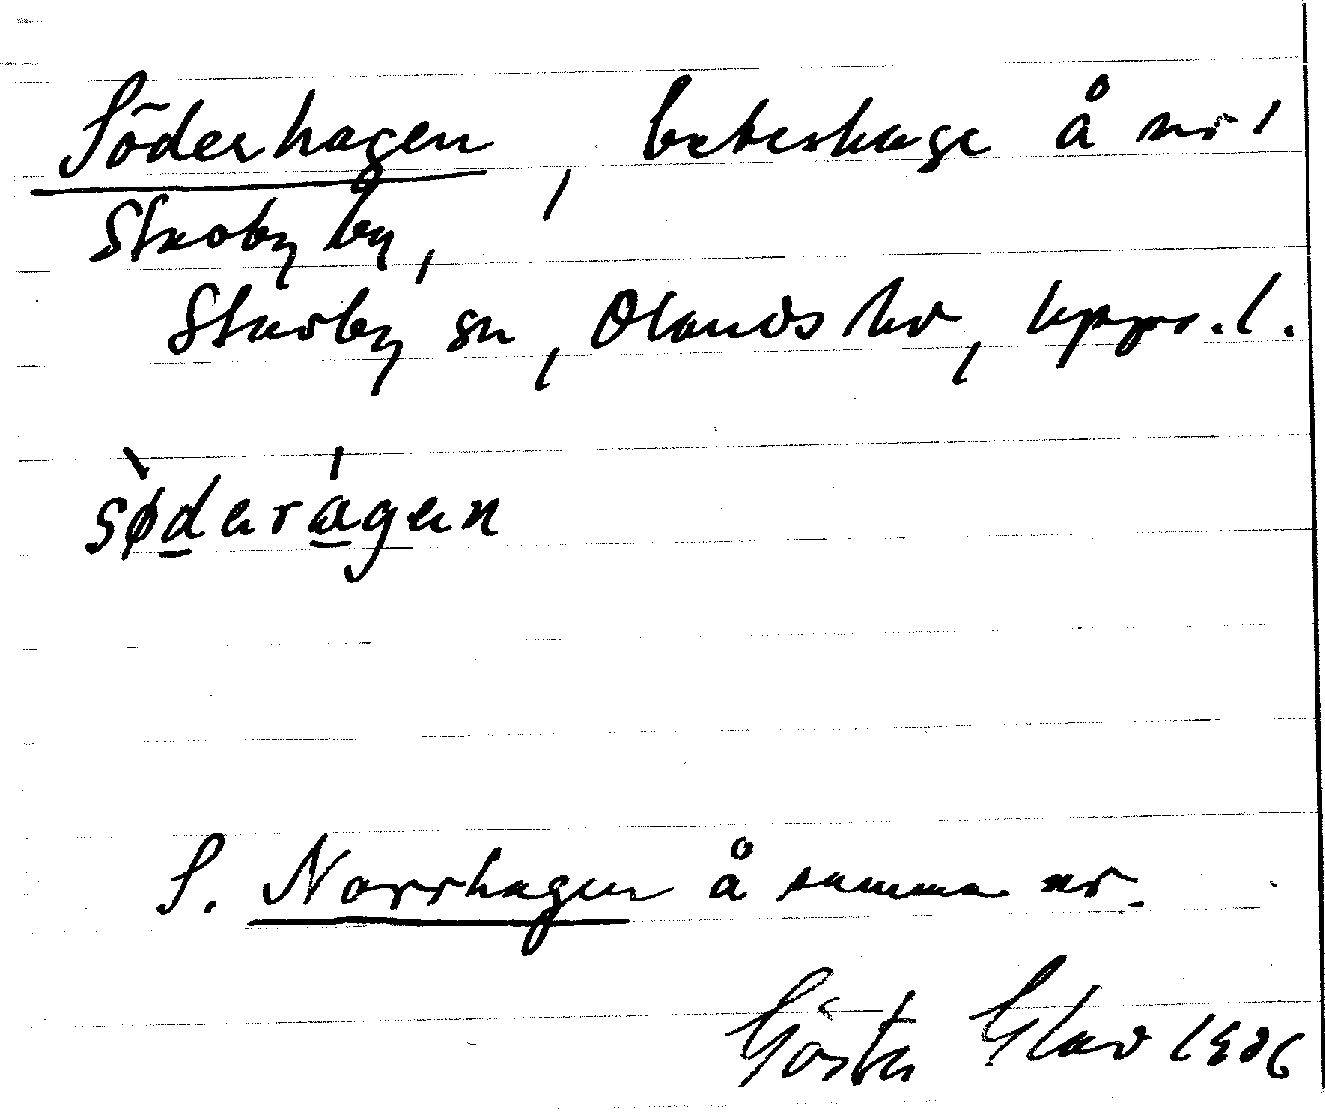 Söderhagen, beteshage å nr 1
Skoby by,
Skärby sn, Olands hd, Upps. l.
sø̀derágen
S. Norrhagen å samma nr.
Gösta Glav